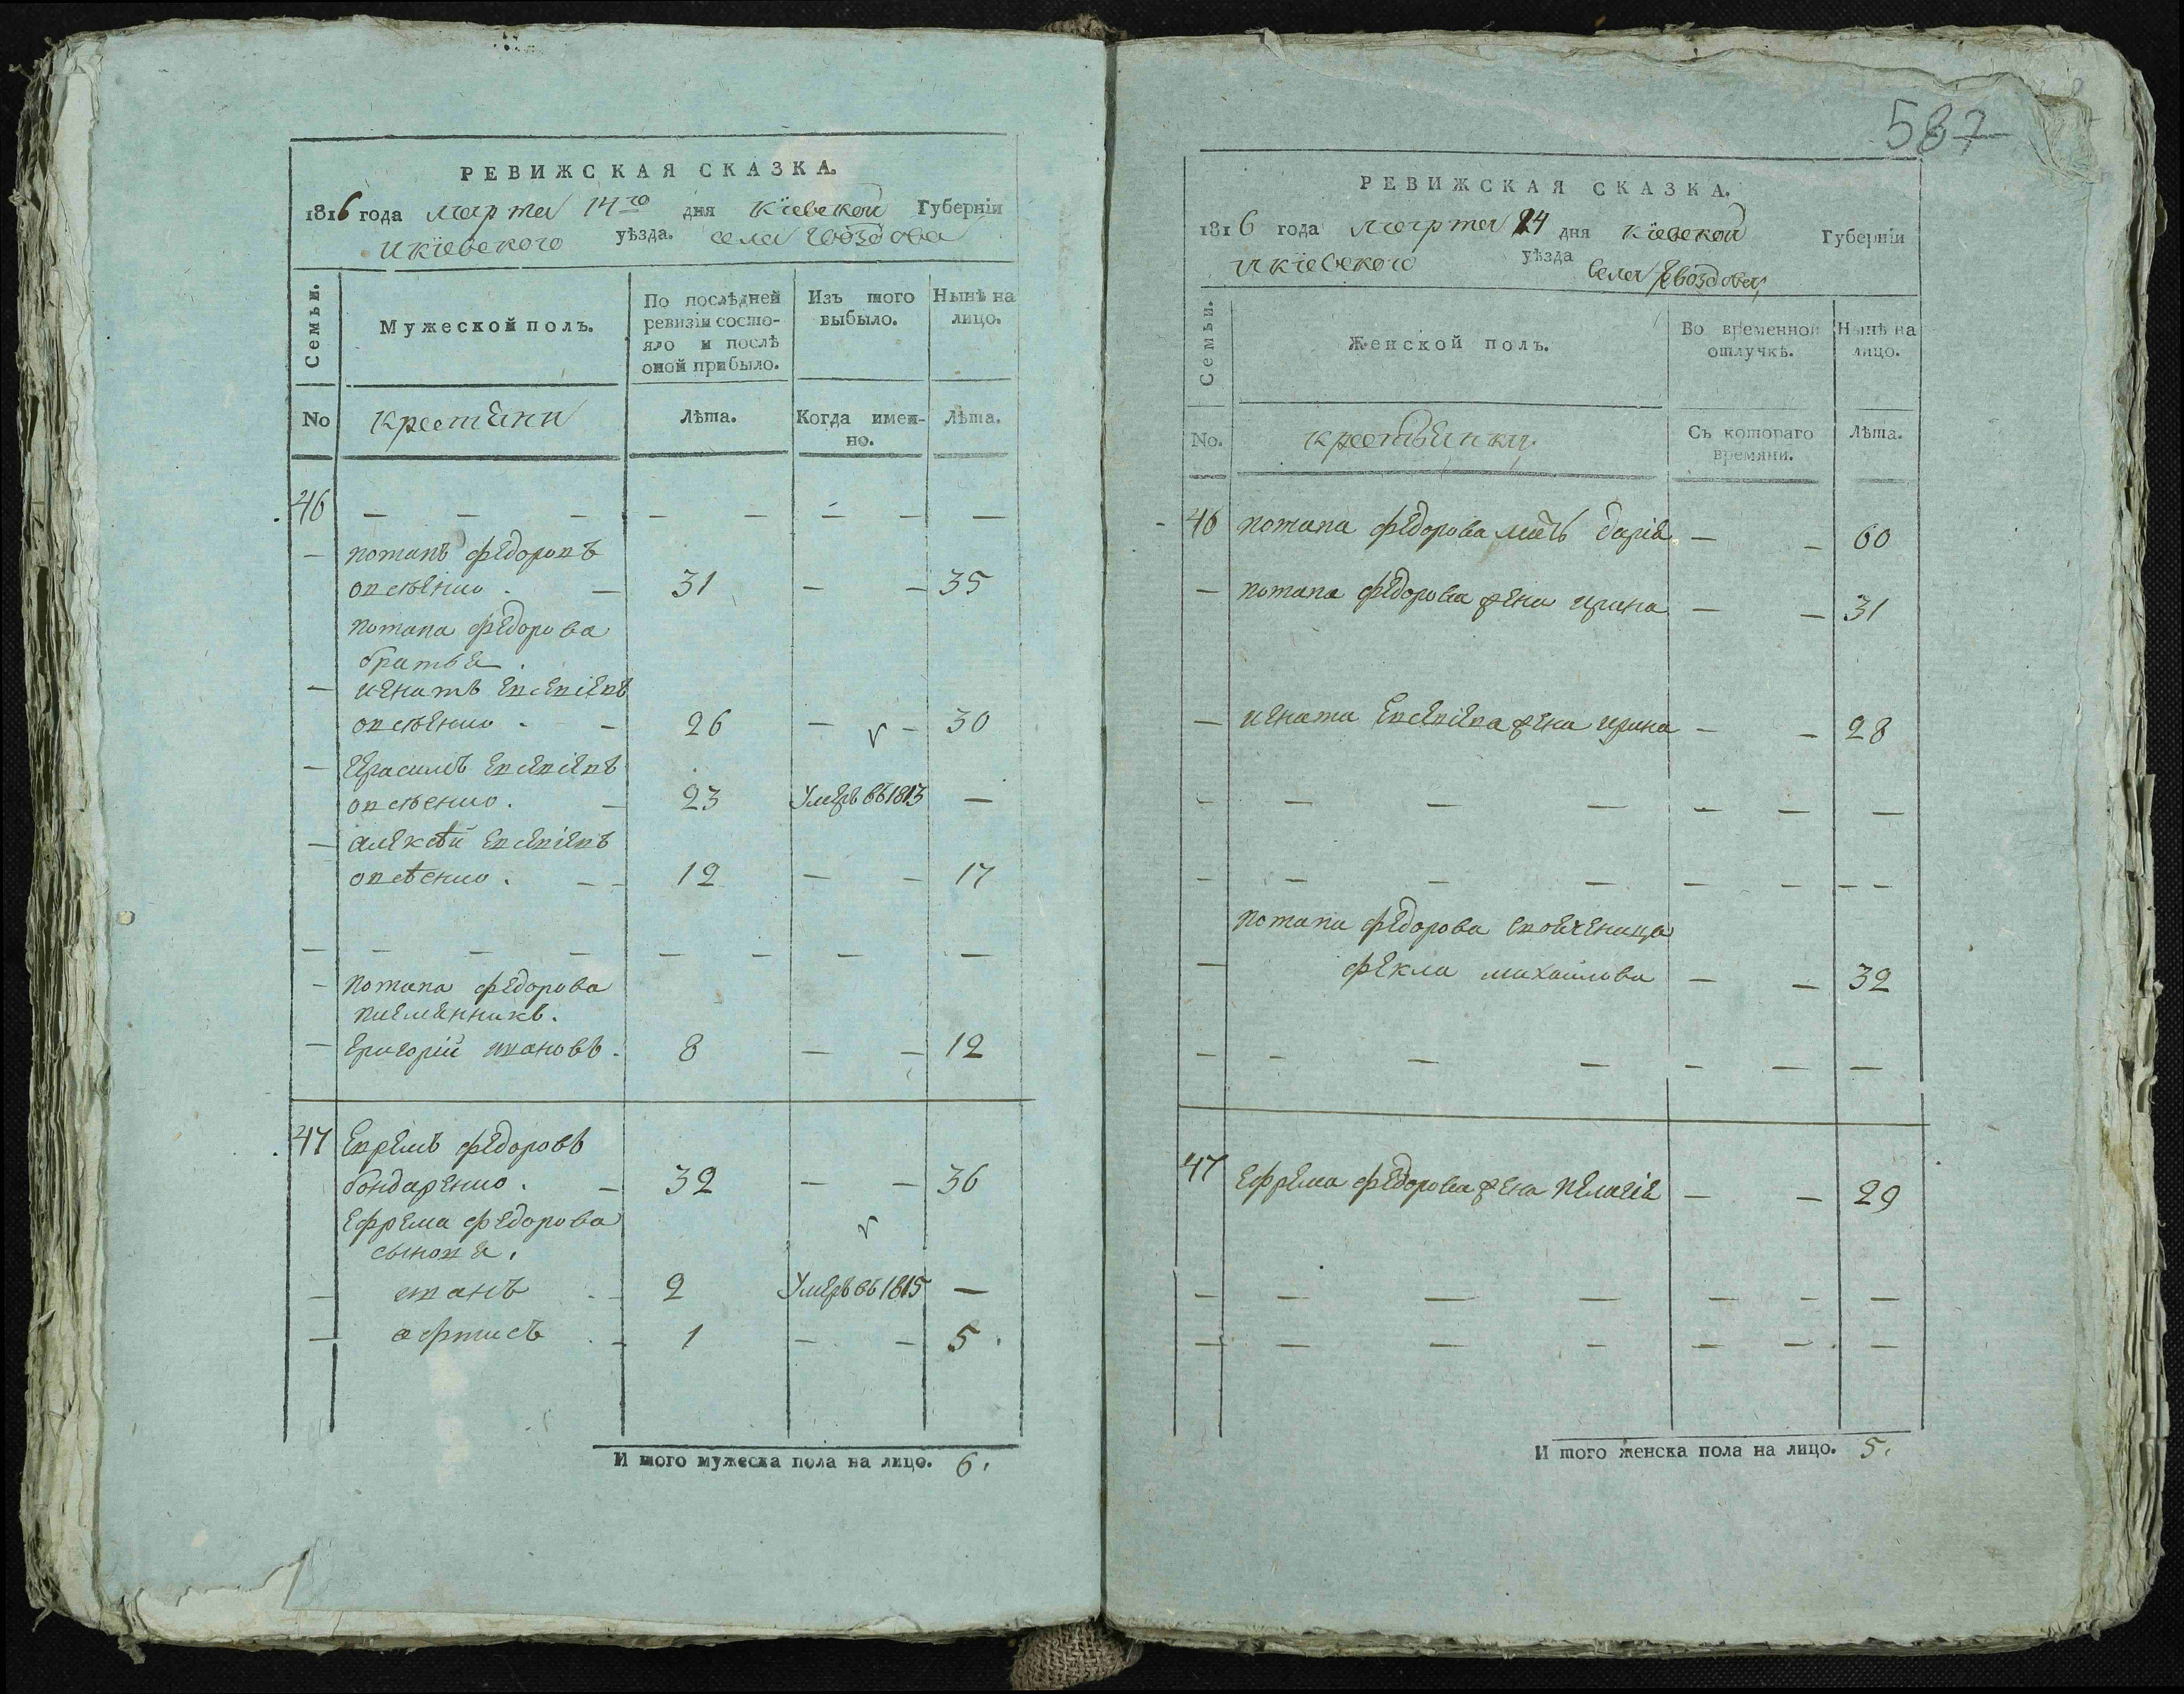 РЕВИЖСКАЯ СКАЗКА.
1816 года марта 14го дня Кіевской Губерніи
и кіевского уѣзда. села Гвоздова
Семьи.
Мужеской полъ.
По послѣдней ревизіи состояло и послѣ оной прибыло.
Изъ того выбыло.
Нынѣ на лицо.
No
крестяни
Лѣта.
Когда именно.
Лѣта.
46
потапъ федоровъ
31 35
потапа федорова
братья.
игнатъ
26 30
герасимъ
23 умеръ въ 1813
алексѣй
12 17
потапа федорова
племянникъ.
григорій ивановъ. 8 12
47 ефремъ федоровъ
бондаренко. 32 36
ефрема федорова
сыновя.
иванъ 2 умеръ въ 1815
1 5.
И того мужеска пола на лицо. 6.
587
РЕВИЖСКАЯ СКАЗКА.
1816 года марта 14 дня кіевской Губерніи
и кіевского уѣзда села Гвоздова
Семьи.
Женской полъ.
Во временной отлучкѣ.
Нынѣ на лицо.
No.
крестьянки.
Съ котораго времяни.
Лѣта.
46 потапа федорова мать дарія 60
потапа федорова жена ирина 31
игната жена ирина 28
потапа федорова
фекла михайлова 32
47 ефрема федорова жена пелагія 29
И того женска пола на лицо. 5.